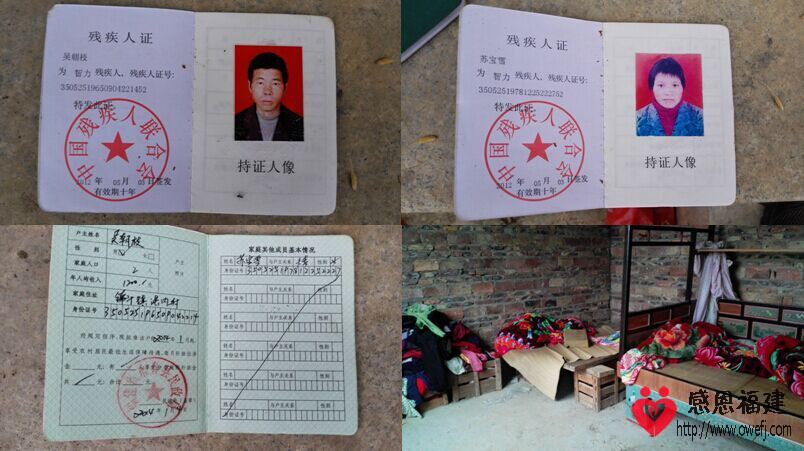 残疾人证
吴朝枝
为 智力 残疾人, 残疾人证号:
35052519650904221452
特发此证。
中国残疾人联合会
2012 年 05 月 03 日签发
有效期十年
持证人像
残疾人证
苏宝雪
为 智力 残疾人, 残疾人证号:
35052519781225222752
特发此证。
中国残疾人联合会
2012 年 05 月 日签发
有效期十年
持证人像
户主姓名 吴朝枝
性别 男 女
家庭人口 2 人
年人均收入 1200 元
家庭住址
身份证号 350525196509042214
户主
照片
经规定程序, 现批准该户从2014年1月起,
享受农村居民最低生活保障待遇
金 元; 年
共 元; 合计
2014 年 1 月
家庭其他成员基本情况
姓名 苏宝雪 与户主关系 夫妻 性别 女
身份证号 350525197812252227
姓名 与户主关系 性别
身份证号
姓名 与户主关系 性别
身份证号
姓名 与户主关系 性别
身份证号
姓名 与户主关系 性别
身份证号
感恩福建
http://www.owefj.com